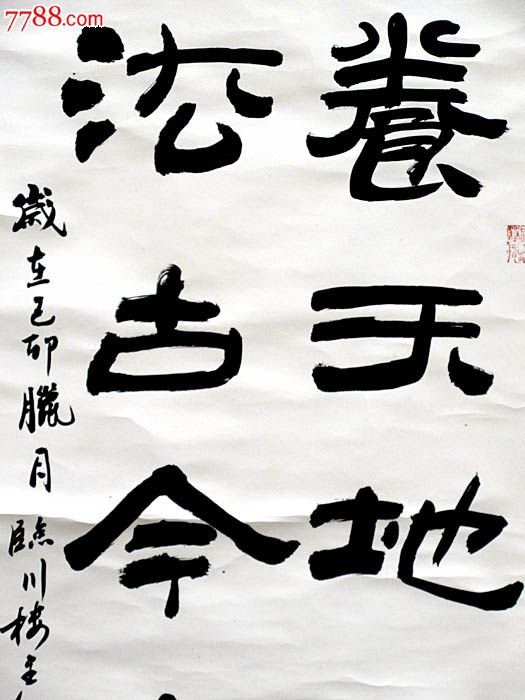 7788.com
養天地
法古今
歲在己卯臘月臨川楼主